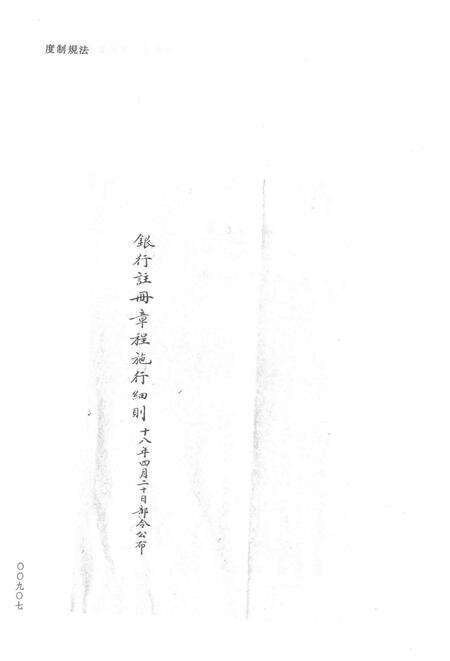 度制規法
銀行註冊章程施行細則 十八年四月二十日部令公布
〇〇九〇七